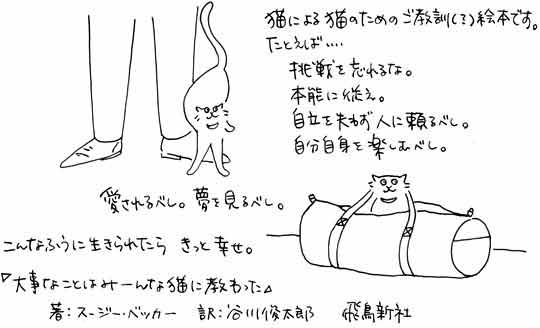 猫による猫のためのご教訓(?)絵本です。
たとえば‥‥
挑戦を忘れるな。
本能に従え。
自立を失わず人に頼るべし。
自分自身を楽しむべし。
愛されるべし。夢を見るべし。
こんなふうに生きられたら きっと幸せ。
『大事なことはみーんな猫に教わった』
著：スージー・ベッカー 訳：谷川俊太郎 飛鳥新社